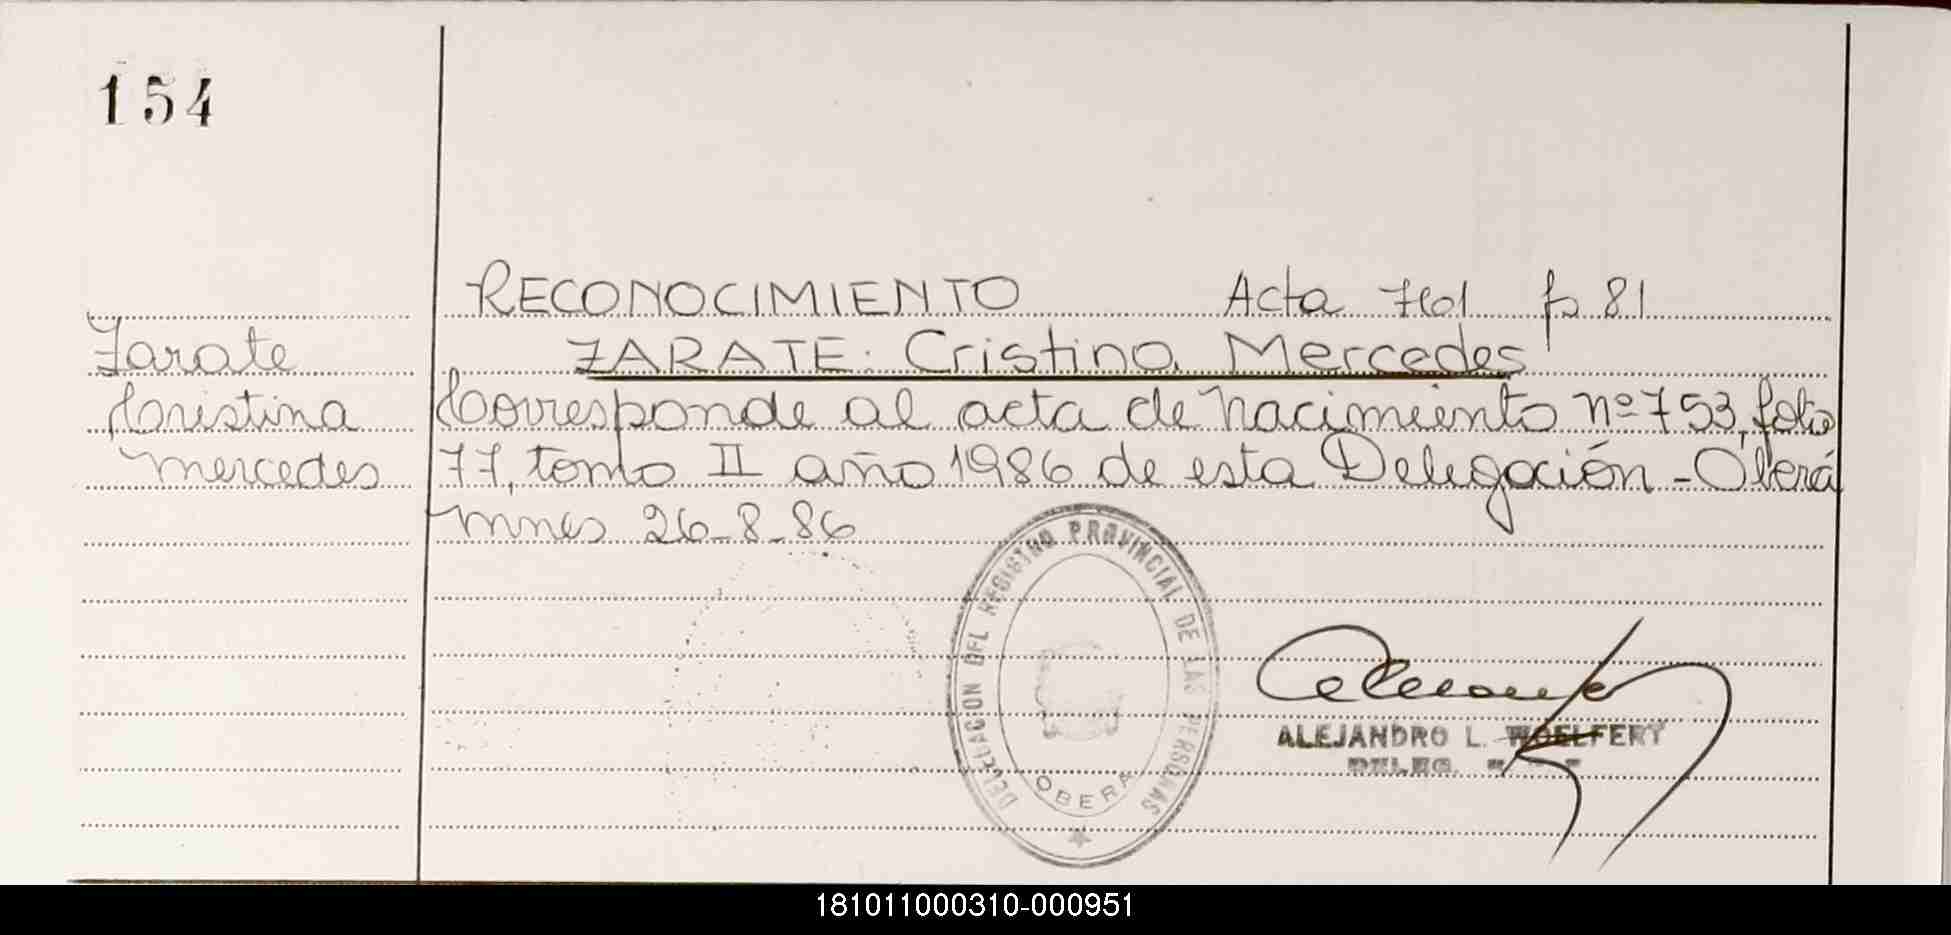 154
RECONOCIMIENTO Acta 761 fs 81
Zarate
ZARATE: Cristina Mercedes
Cristina
Corresponde al acta de nacimiento nº 753, folio
mercedes
77, tomo II año 1986 de esta Delegación - Oberá
mnes 26-8-86
DELEGACION DEL REGISTRO PROVINCIAL DE LAS PERSONAS
OBERA
ALEJANDRO L. WOELFERT
DELEG.
181011000310-000951